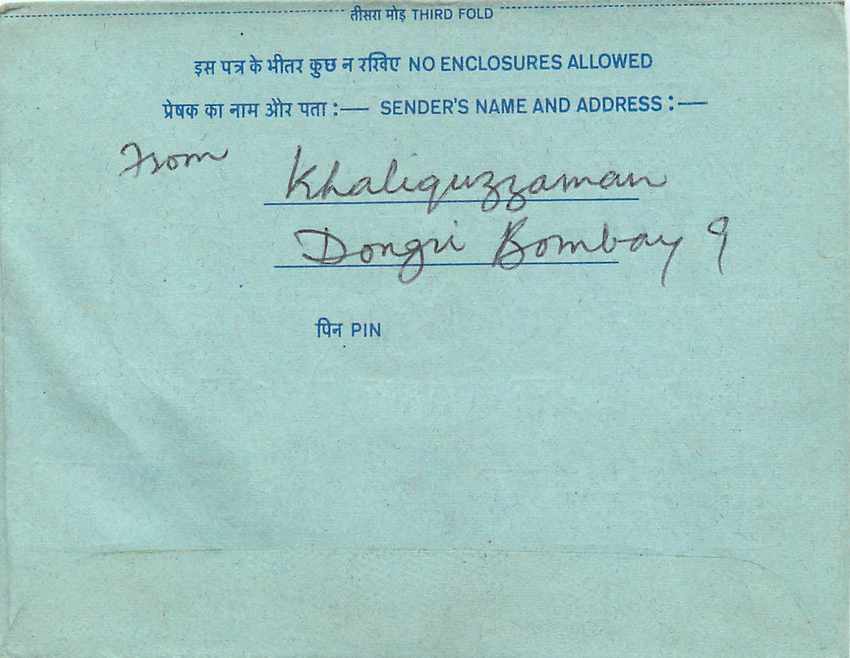 तीसरा मोड़ THIRD FOLD
इस पत्र के भीतर कुछ न रखिए NO ENCLOSURES ALLOWED
प्रेषक का नाम और पता :— SENDER'S NAME AND ADDRESS :—
From Khaliquzzaman
Dongri Bombay 9
पिन PIN